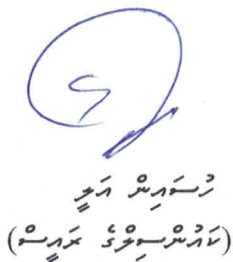 ހުސައިން އަލީ
(ކައުންސިލްގެ ރައީސް)